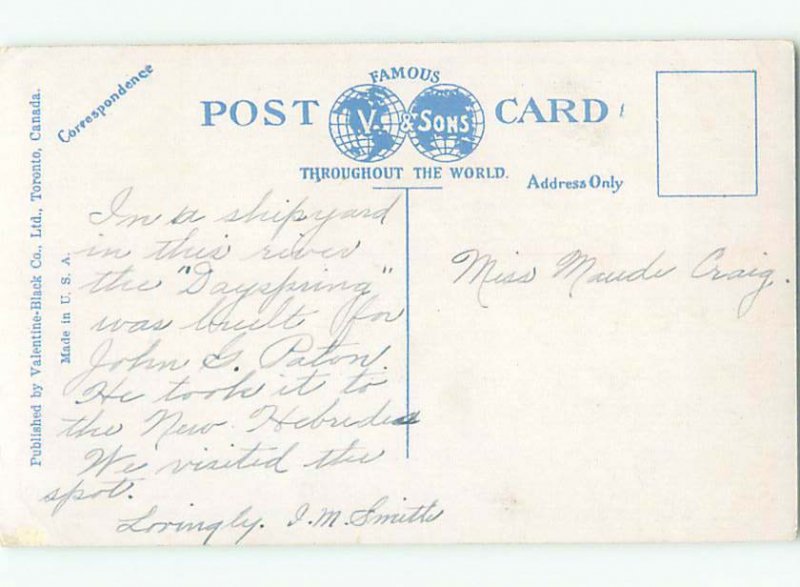 Published by Valentine-Black Co., Ltd., Toronto, Canada.
Made in U. S. A.
Correspondence
FAMOUS
POST V. & SONS CARD
THROUGHOUT THE WORLD.
Address Only
In a shipyard
in this river
the "Dayspring"
was built for
John G. Paton.
He took it to
the New Hebrides
We visited the
spot.
Lovingly. I. M. Smith
Miss Maude Craig.